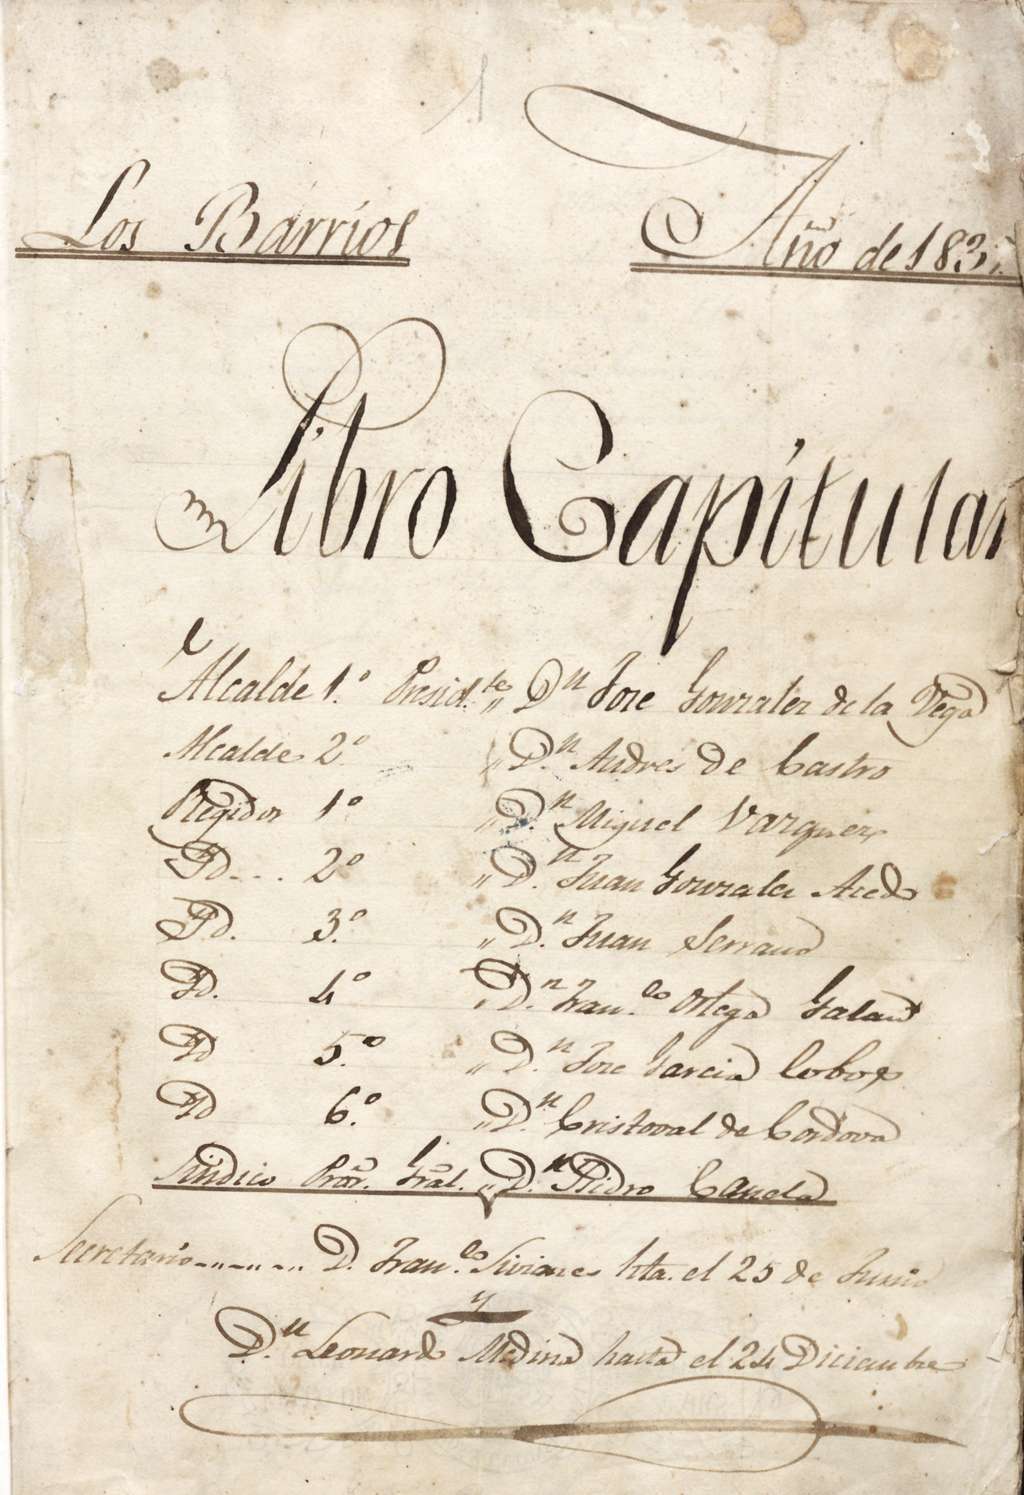 1
Los Barrios Año de 183
Libro Capitular
Alcalde 1.º Presid.te „ D.n Jose Gonzalez de la Vega
Alcalde 2º „ D.n Andres de Castro
Regidor 1º „ D.n Miguel Vazquez
Id... 2º „ D.n Juan Gonzalez Acedo
Id. 3.º „ D.n Juan Serrano
Id. 4º „ D.n Fran.co Ortega Galan
Id 5.º „ D.n Jose Garcia Cobos
Id 6.º „ D.n Cristoval de Cordova
Sindico Pror. Gral. „ D.n Isidro Canela
Secretario D. Fran.co hta. el 25 de Junio
y
D.n Leonardo Medina hasta el 24 Diciembre